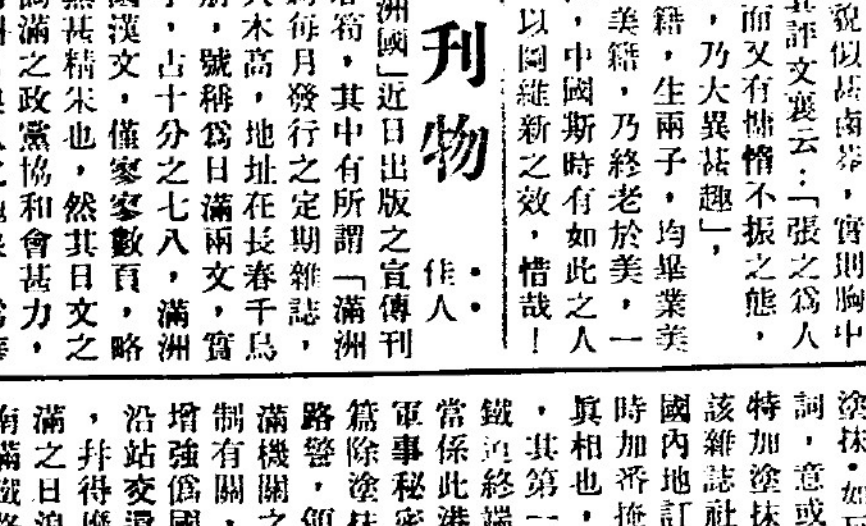 貌似甚鹵莽，實則胸中
其評文襄云：「張之爲人
而又有慵惰不振之態，
，乃大異甚趣」，
籍，生兩子，均畢業美
美籍，乃終老於美，一
，中國斯時有如此之人
以圖維新之效，惜哉！
刊物
佳人
洲國」近日出版之宣傳刊
，其中有所謂「滿洲
每月發行之定期雜誌，
木高，地址在長春千鳥
，號稱爲日滿兩文，實
，占十分之七八，滿洲
漢文，僅寥寥數頁，略
甚精采也，然其日文之
滿之政黨協和會甚力，
塗抹。如
詞，意或
特加塗抹
該雜誌社
國內地訂
時加番掩
眞相也，
，其第一
鐵迫終端
當係此港
軍事秘密
篇除塗抹
路警，
滿機關之
制有關，
增強僞國
沿站交還
，幷得
滿之日
南滿鐵